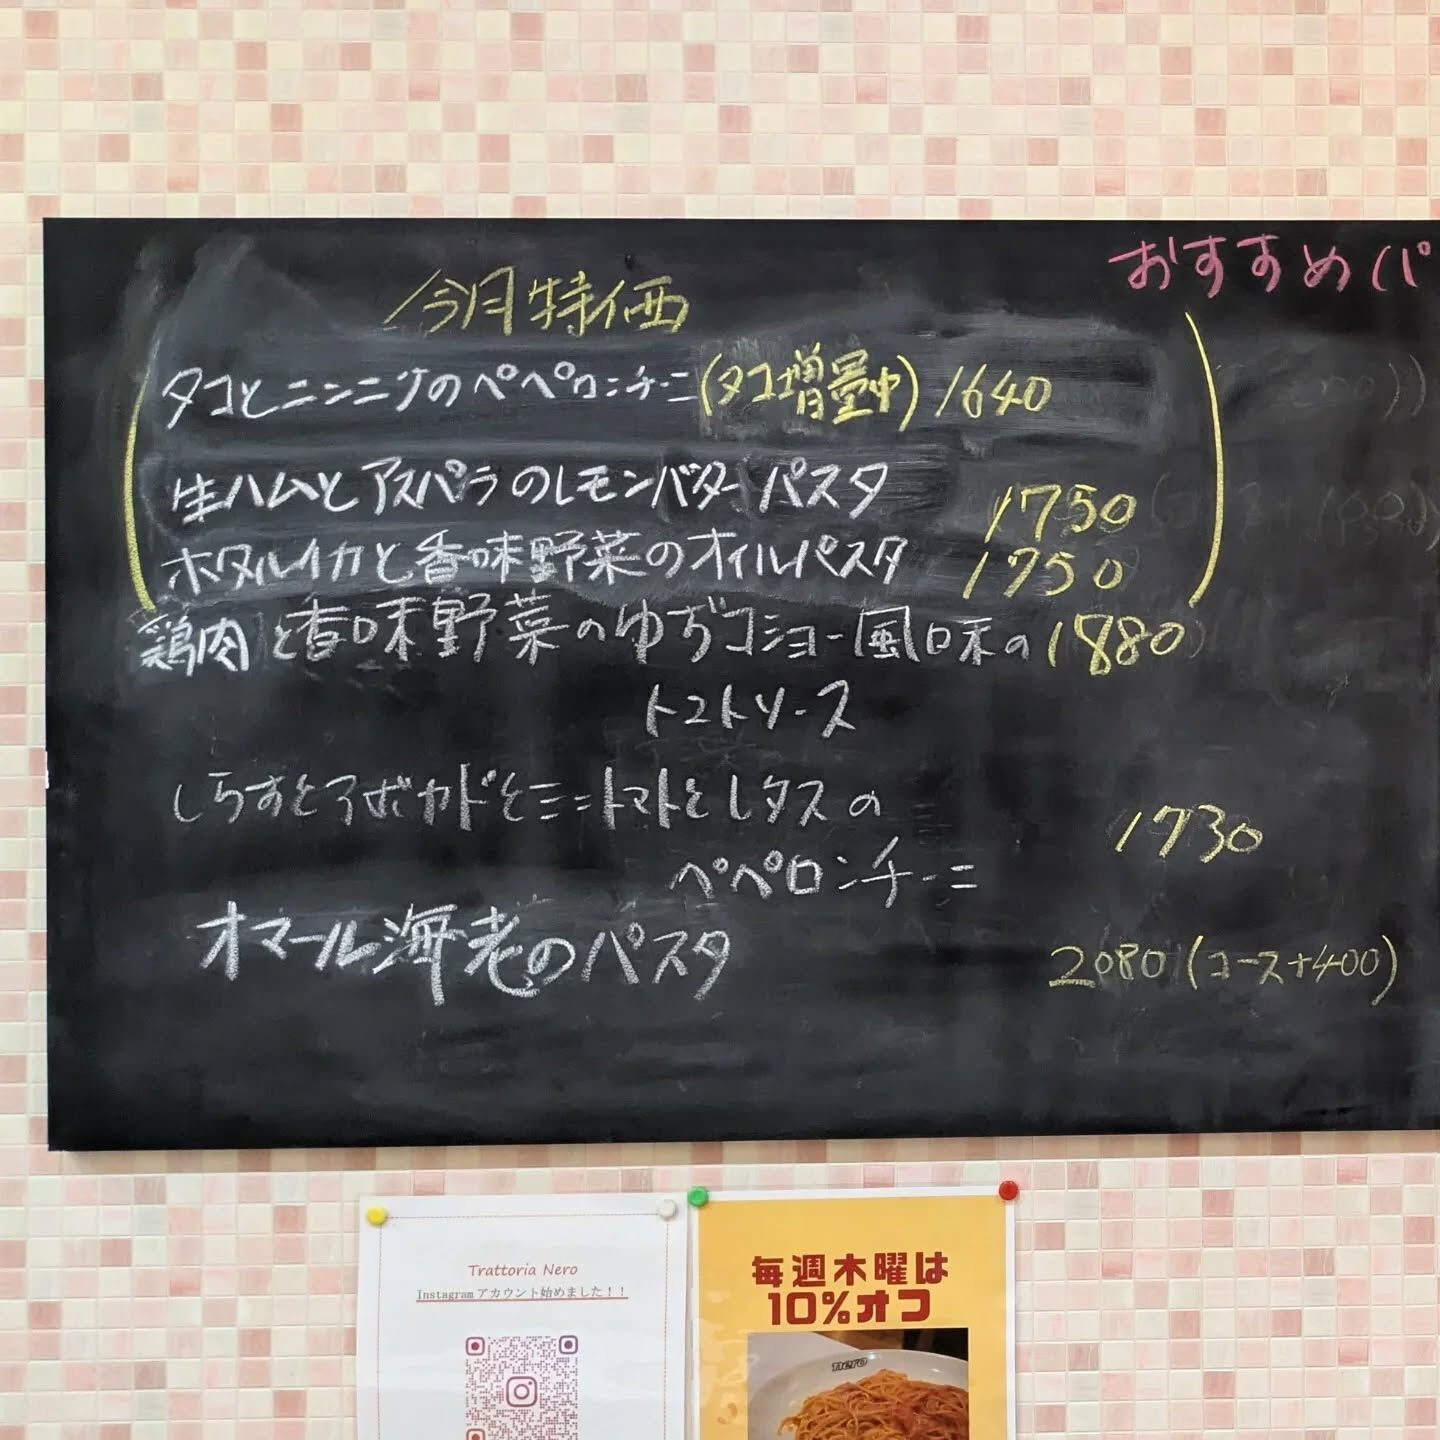 おすすめパ
今月特価
タコとニンニクのペペロンチーニ(タコ増量中) 1640
生ハムとアスパラのレモンバターパスタ 1750
ホタルイカと香味野菜のオイルパスタ 1750
鶏肉と香味野菜のゆずコショー風味の 1880
トマトソース
しらすとアボカドとミニトマトとレタスの
ペペロンチーニ 1730
オマール海老のパスタ 2080(コース+400)
Trattoria Nero
Instagramアカウント始めました!!
毎週木曜は
10%オフ
nero